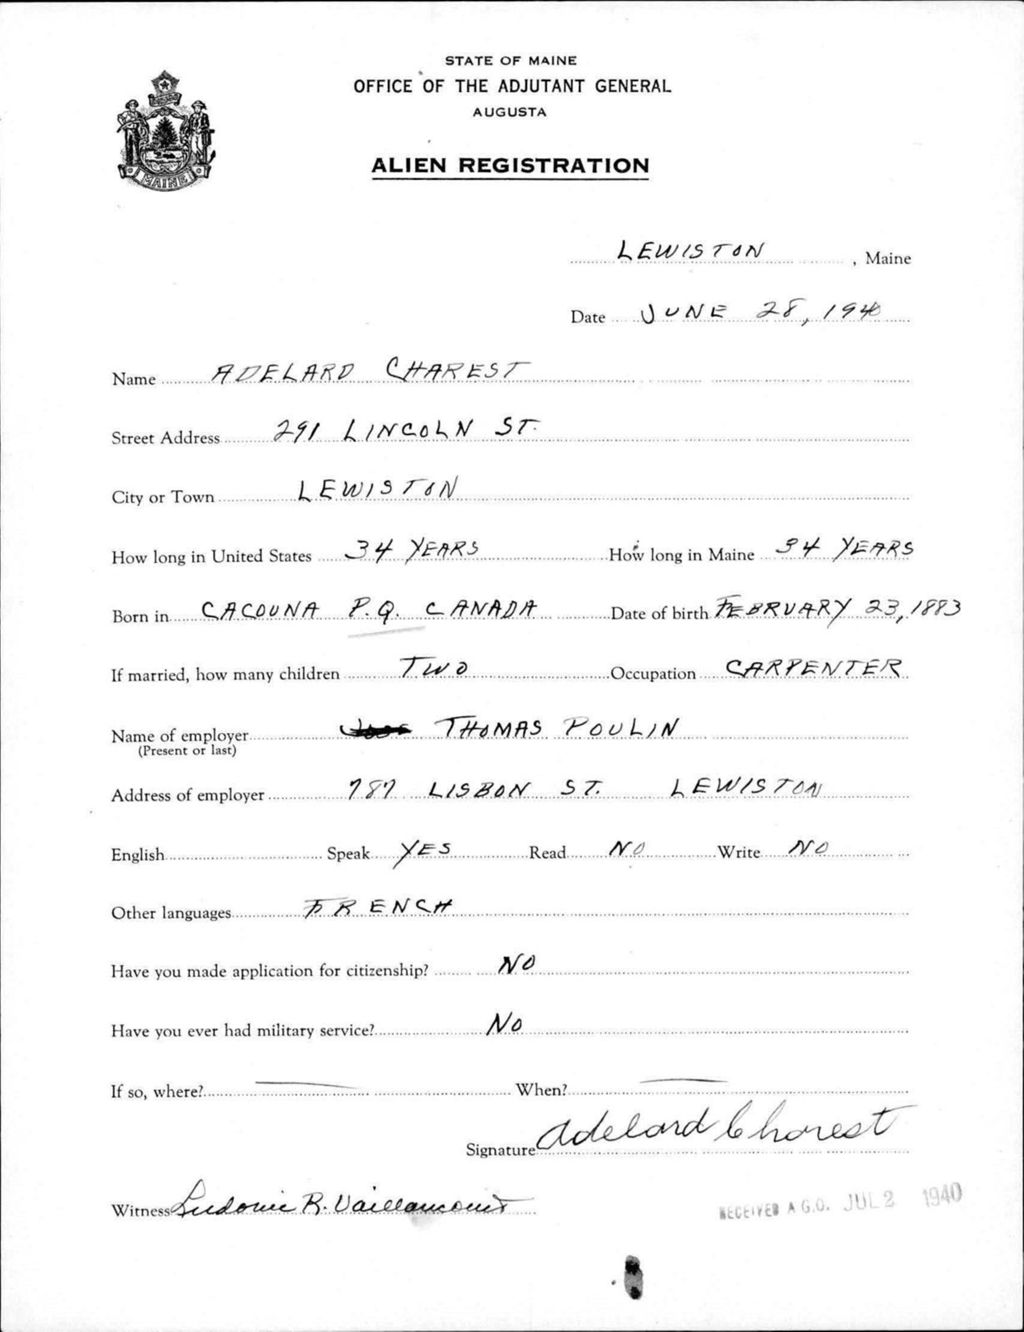 STATE OF MAINE
OFFICE OF THE ADJUTANT GENERAL
AUGUSTA
ALIEN REGISTRATION
MAINE
LEWISTON, Maine
Date JUNE 28, 1940
Name ADELARD CHAREST
Street Address 291 LINCOLN ST.
City or Town LEWISTON
How long in United States 34 YEARS How long in Maine 34 YEARS
Born in CACOUNA P.Q. CANADA Date of birth FEBRUARY 23, 1883
If married, how many children TWO Occupation CARPENTER
Name of employer THOMAS POULIN
(Present or last)
Address of employer 787 LISBON ST. LEWISTON
English Speak YES Read NO Write NO
Other languages FRENCH
Have you made application for citizenship? NO
Have you ever had military service? NO
If so, where? When?
Signature Adelard Charest
Witness Ludovic R. Vaillancourt
RECEIVED A.G.O. JUL 2 1940